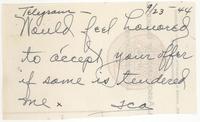 Telegram — 9/23 - 44
Would feel honored
to accept your offer
if same is tendered
me x